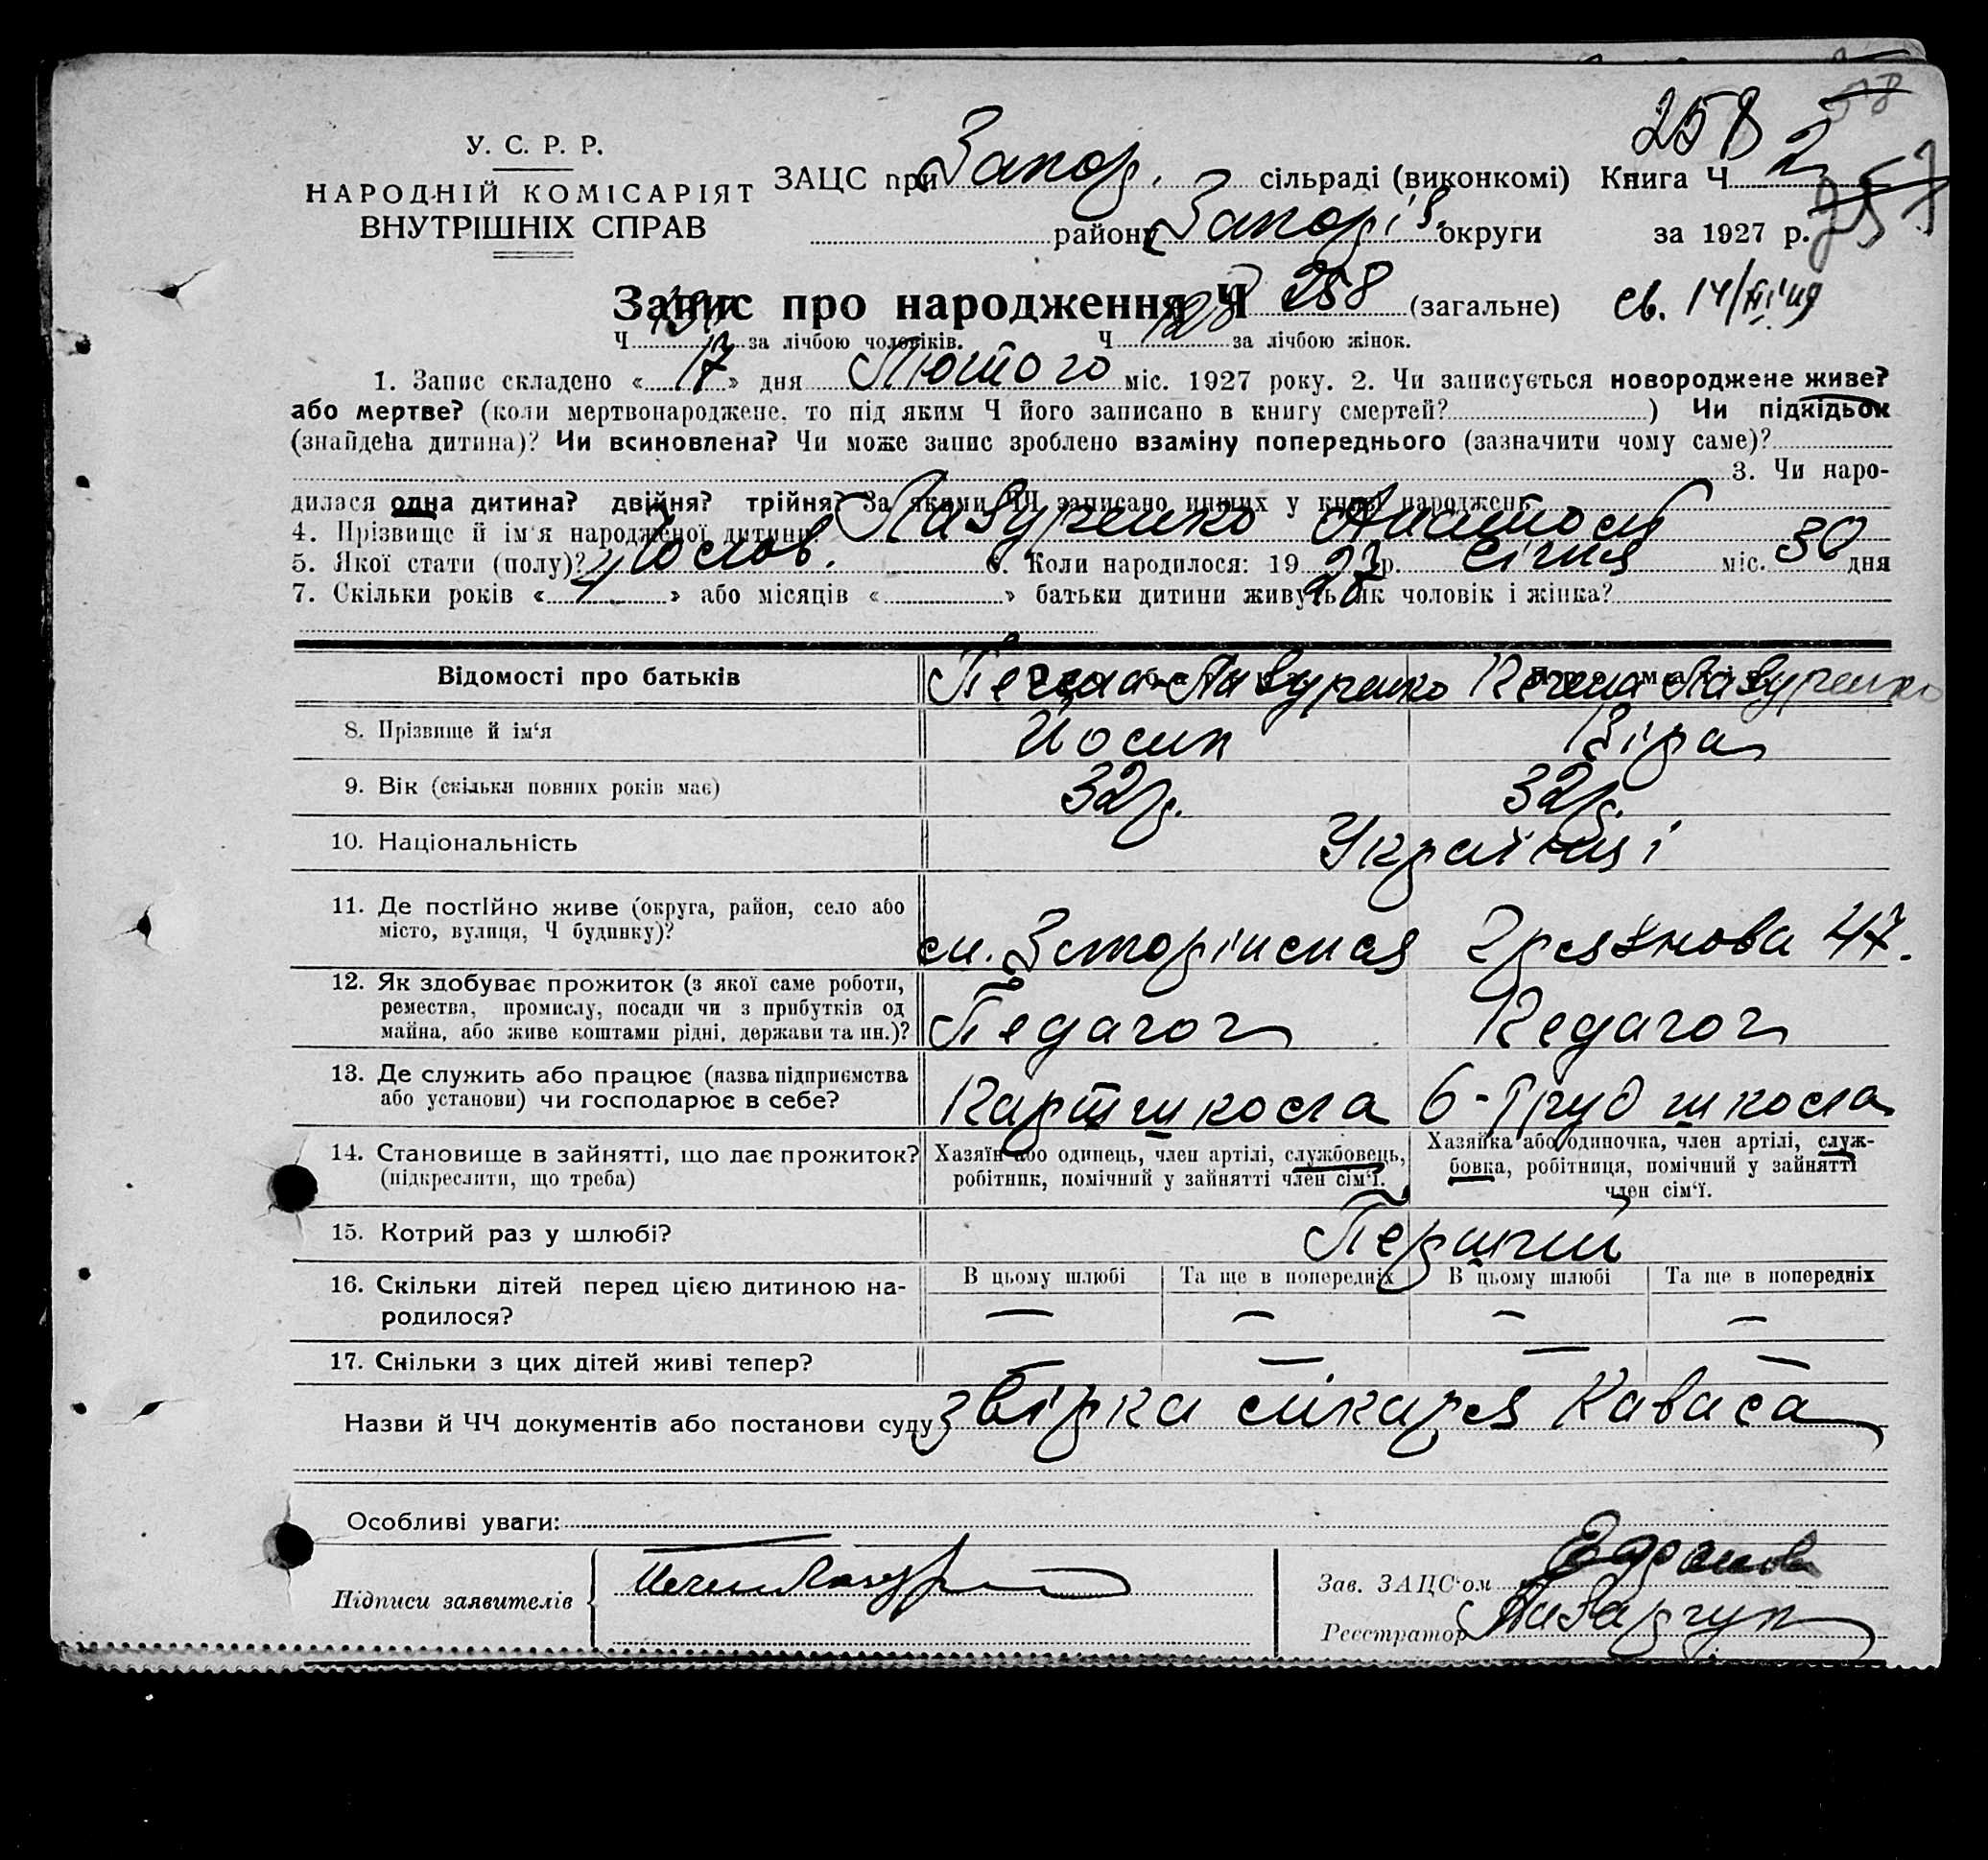 258
У. С. Р. Р.
НАРОДНІЙ КОМІСАРІЯТ
ВНУТРІШНІХ СПРАВ
ЗАЦС при Запор. сільраді (виконкомі) Книга Ч. 2
району Запоріз. округи за 1927 р. 257
Запис про народження Ч 258 (загальне) св. 14/
Ч за лічбою чоловіків. Ч 128 за лічбою жінок.
1. Запис складено « 17 » дня Лютого міс. 1927 року. 2. Чи записується новороджене живе?
або мертве? (коли мертвонароджене, то під яким Ч його записано в книгу смертей? ) Чи підкідьок
(знайдена дитина)? Чи всиновлена? Чи може запис зроблено взаміну попереднього (зазначити чому саме)?
3. Чи наро-
дилася одна дитина? двійня? трійня? За якими ЧЧ записано инших у книзі народжень
4. Прізвище й ім'я народженої дитини Лазуренко Анатолій
5. Якої стати (полу)? Чолов. 6. Коли народилося: 19 27 р. Січня міс. 30 дня
7. Скільки років « » або місяців « » батьки дитини живуть як чоловік і жінка?
Відомості про батьків
8. Прізвище й ім'я Печена-Лазуренко Йосип Печена Лазуренко Віра
9. Вік (скільки повних років має) 32 р. 32 р.
10. Національність Українці
11. Де постійно живе (округа, район, село або
місто, вулиця, Ч будинку)? 47.
12. Як здобуває прожиток (з якої саме роботи,
ремества, промислу, посади чи з прибутків од
майна, або живе коштами рідні, держави та ин.)? Педагог Педагог
13. Де служить або працює (назва підприємства
або установи) чи господарює в себе? Партшкола 6-Труд школа
14. Становище в зайнятті, що дає прожиток?
(підкреслити, що треба)
Хазяїн або одинець, член артілі, службовець,
робітник, помічний у зайнятті член сім'ї.
Хазяйка або одиночка, член артілі, служ-
бовка, робітниця, помічний у зайнятті
член сім'ї.
15. Котрий раз у шлюбі? Перший
16. Скільки дітей перед цією дитиною на-
родилося?
В цьому шлюбі Та ще в попередніх В цьому шлюбі Та ще в попередніх
— — — —
17. Скільки з цих дітей живі тепер? — — — —
Назви й ЧЧ документів або постанови суду звірка лікаря
Особливі уваги:
Підписи заявителів
Зав. ЗАЦС'ом
Реєстратор